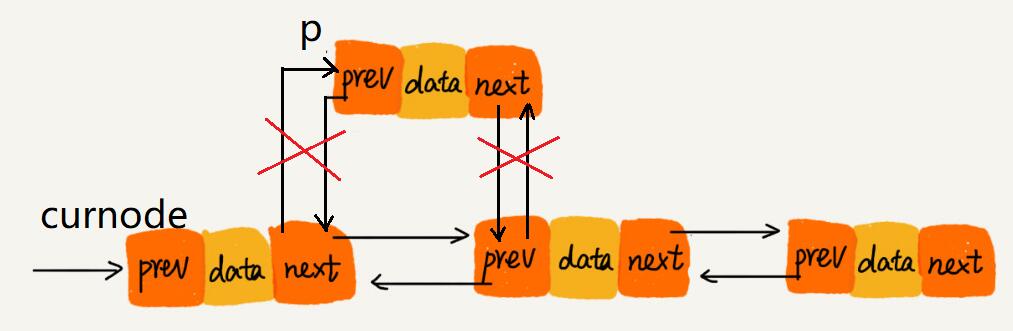 p
prev data next
curnode
prev data next prev data next prev data next